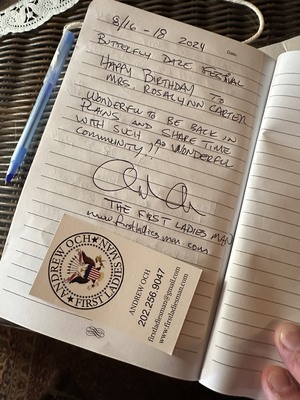 8/16 - 18 2024
Date:
BUTTERFLY DAZE FESTIVAL
HAPPY BIRTHDAY TO
MRS. ROSALYNN CARTER
WONDERFUL TO BE BACK IN
PLAINS AND SHARE TIME
WITH SUCH A WONDERFUL
COMMUNITY!
THE FIRST LADIES MAN
www.firstladiesman.com
ANDREW OCH
FIRST LADIES MAN
ANDREW OCH
202.256.9047
firstladiesman@gmail.com
www.firstladiesman.com